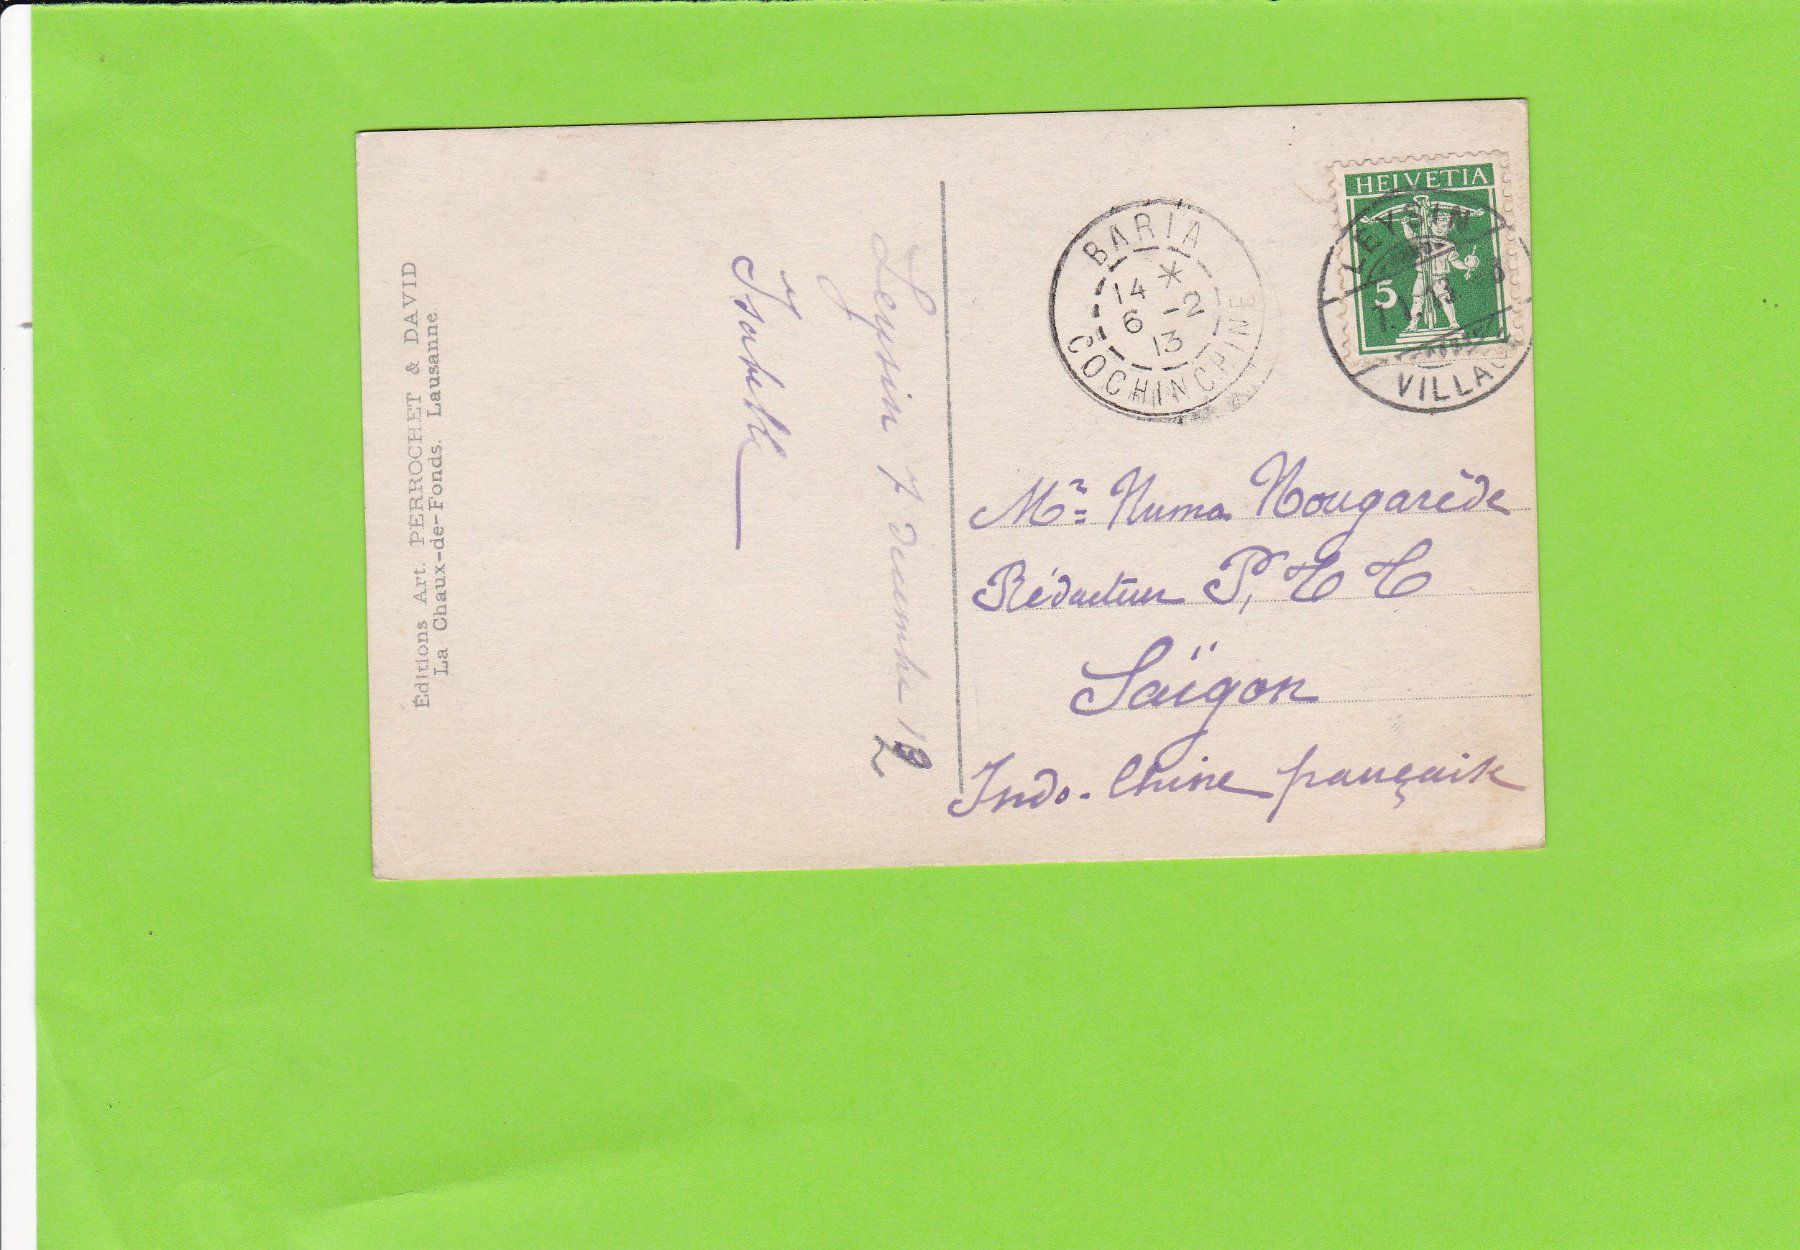 Éditions Art. PERROCHET & DAVID
La Chaux-de-Fonds. Lausanne.
Isabelle
Leysin 7 decembre 12
BARIA
14 *
6 -2
13
COCHINCHINE
HELVETIA
5
LEYSIN
7.1.13
VILLAG
Mr Numa Nougarède
Rédacteur P, T T
Saïgon
Indo-Chine française